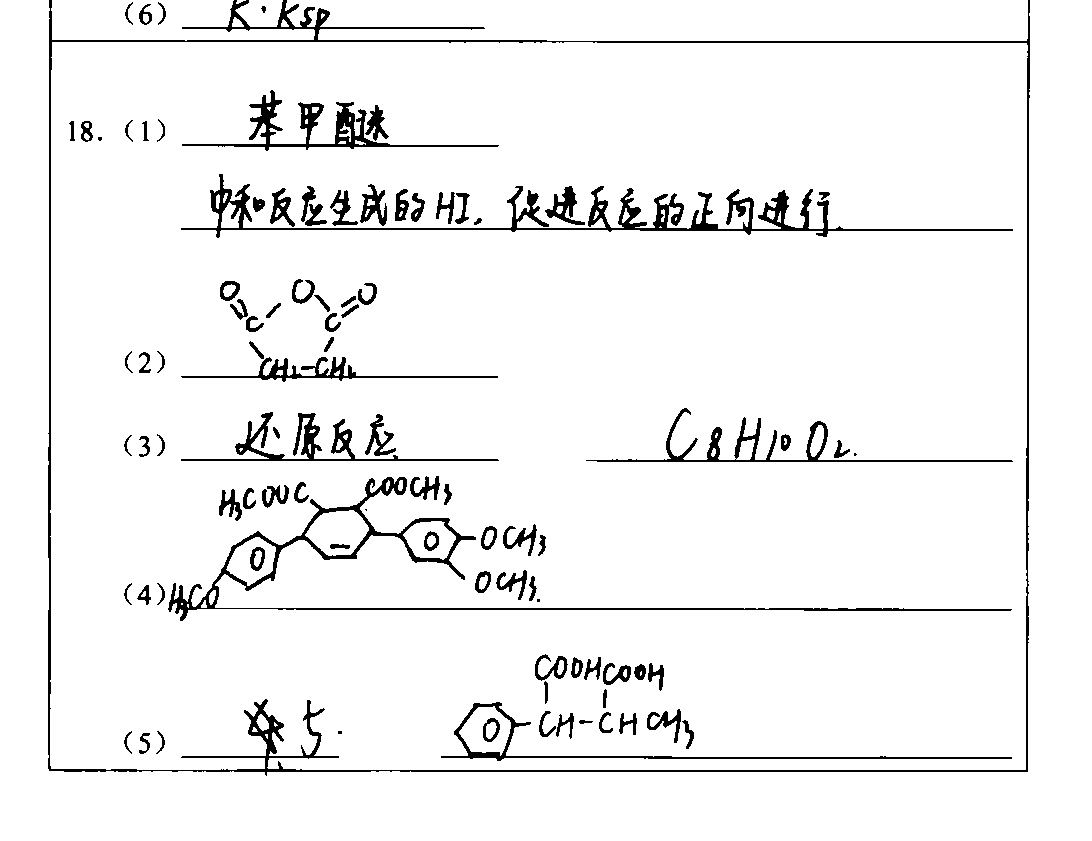 (6) K·Ksp
18. (1) 苯甲醚
中和反应生成的HI，促进反应的正向进行.
O O O
C C
(2) CH₂-CH₂
(3) 还原反应 C₈H₁₀O₂.
H₃COOC COOCH₃
OCH₃
OCH₃.
(4) H₃CO
COOH COOH
CH-CHCH₃
(5) 5.